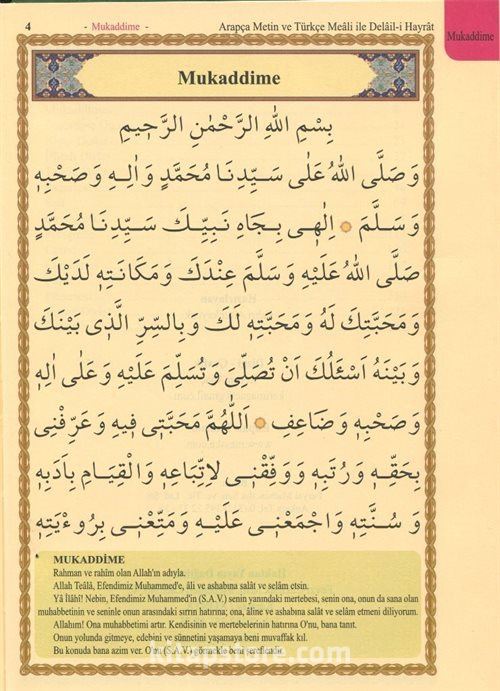 4 - Mukaddime - Arapça Metin ve Türkçe Meâli ile Delâil-i Hayrât
Mukaddime
Mukaddime
بِسْمِ اللهِ الرَّحْمٰنِ الرَّحٖيمِ
وَصَلَّى اللهُ عَلٰى سَيِّدِنَا مُحَمَّدٍ وَاٰلِهٖ وَصَحْبِهٖ
وَسَلَّمَ اِلٰهٖى بِجَاهِ نَبِيِّكَ سَيِّدِنَا مُحَمَّدٍ
صَلَّى اللهُ عَلَيْهِ وَسَلَّمَ عِنْدَكَ وَمَكَانَتِهٖ لَدَيْكَ
وَمَحَبَّتِكَ لَهُ وَمَحَبَّتِهٖ لَكَ وَبِالسِّرِّ الَّذٖى بَيْنَكَ
وَبَيْنَهُ اَسْئَلُكَ اَنْ تُصَلِّىَ وَتُسَلِّمَ عَلَيْهِ وَعَلٰى اٰلِهٖ
وَصَحْبِهٖ وَضَاعِفِ اَللّٰهُمَّ مَحَبَّتٖى فٖيهِ وَعَرِّفْنٖى
بِحَقِّهٖ وَرُتَبِهٖ وَوَفِّقْنٖى لِاتِّبَاعِهٖ وَالْقِيَامِ بِاَدَبِهٖ
وَسُنَّتِهٖ وَاجْمَعْنٖى عَلَيْهِ وَمَتِّعْنٖى بِرُؤْيَتِهٖ
MUKADDİME
Rahman ve rahîm olan Allah'ın adıyla.
Allah Teâlâ, Efendimiz Muhammed'e, âli ve ashabına salât ve selâm etsin.
Yâ İlâhî! Nebin, Efendimiz Muhammed'in (S.A.V.) senin yanındaki mertebesi, senin ona, onun da sana olan
muhabbetinin ve seninle onun arasındaki sırrın hatırına; ona, âline ve ashabına salât ve selâm etmeni diliyorum.
Allahım! Ona muhabbetimi artır. Kendisinin ve mertebelerinin hatırına O'nu, bana tanıt.
Onun yolunda gitmeye, edebini ve sünnetini yaşamaya beni muvaffak kıl.
Bu konuda bana azim ver. O'nu (S.A.V.) görmekle beni şereflendir.
kitapstore.com